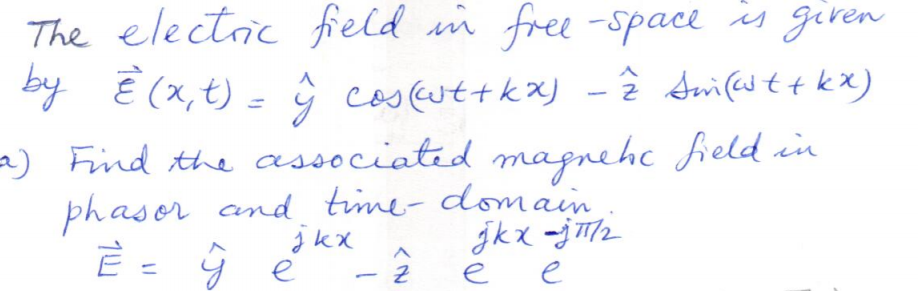 The electric field in free-space is given
by E⃗(x,t) = ŷ cos(ωt+kx) - ẑ sin(ωt+kx)
a) Find the associated magnetic field in
phasor and time-domain.
E⃗ = ŷ e^{jkx} - ẑ e^{jkx} e^{-jπ/2}